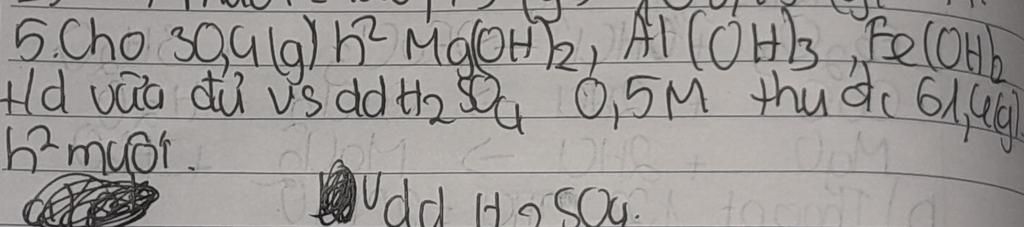 5. Cho 30,4(g) h² Mg(OH)₂, Al(OH)₃, Fe(OH)₂
td vừa đủ vs dd H₂SO₄ 0,5M thu đc 61,4(g)
h² muối.
V dd H₂SO₄.